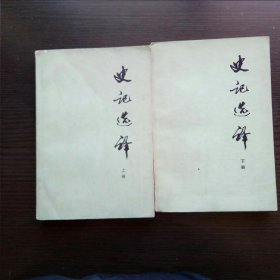 史记选译
上册
史记选译
下册